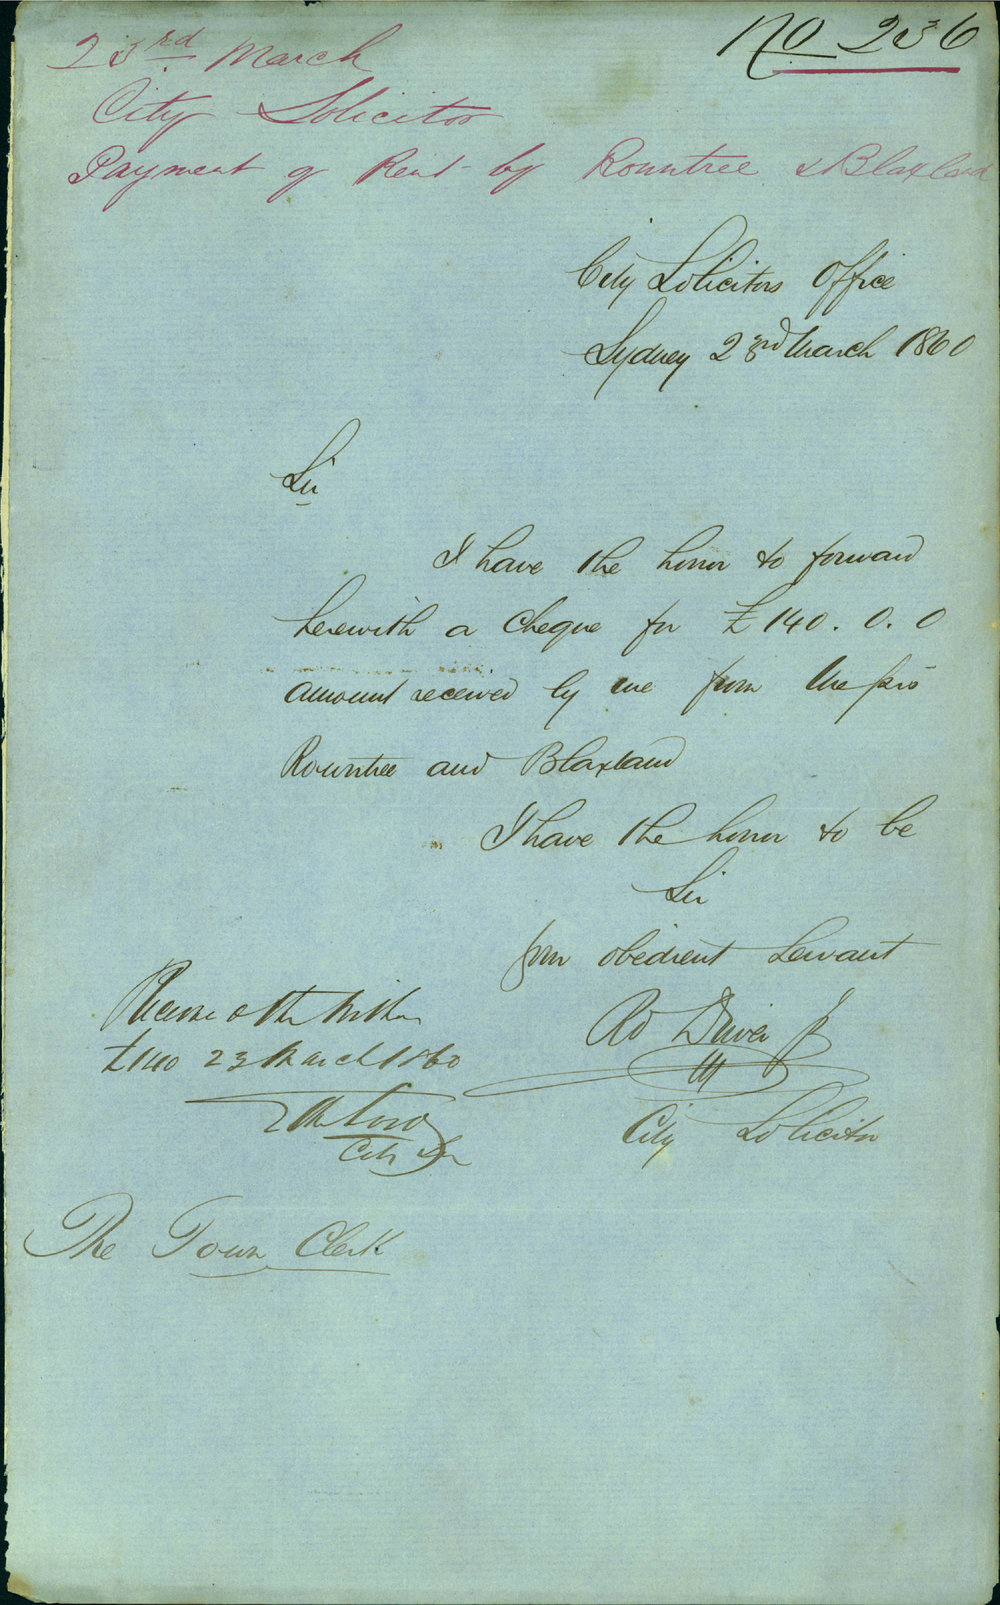 No 236
23rd March
City Solicitor
Payment of Rent by Rowntree & Blaxland
City Solicitors Office
Sydney 23rd March 1860
Sir
I have the honor to forward
herewith a Cheque for £140.0.0
amount received by me from Messrs
Rowntree and Blaxland
I have the honor to be
Sir
your obedient Servant
Rd Driver Jr
City Solicitor
Received the within
£140 23 March 1860
City
The Town Clerk